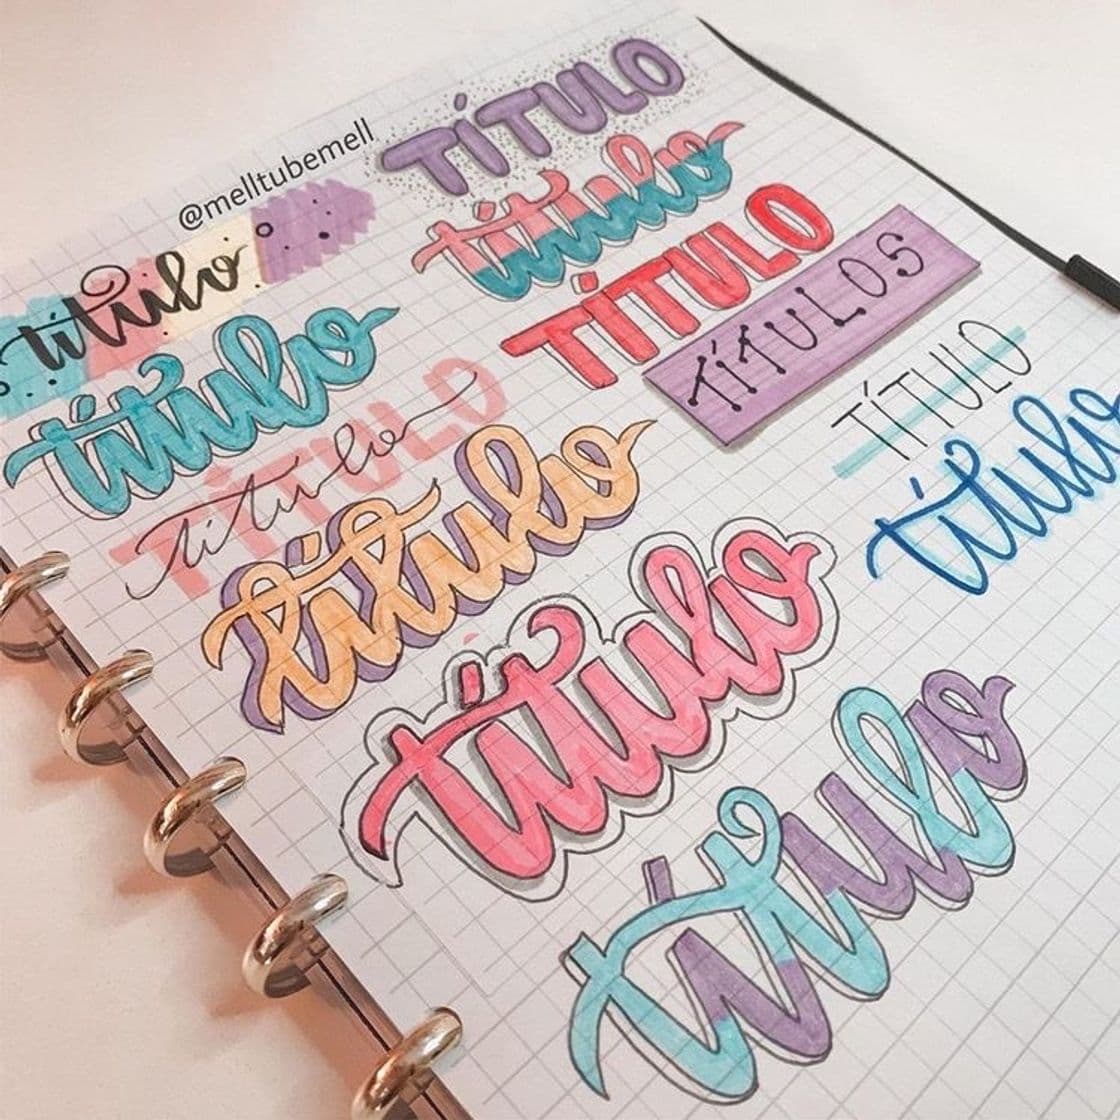 @melltubemell
TÍTULO
título
título
TÍTULO
título
TÍTULOS
TÍTULO
título
TÍTULO
título
título
título
título